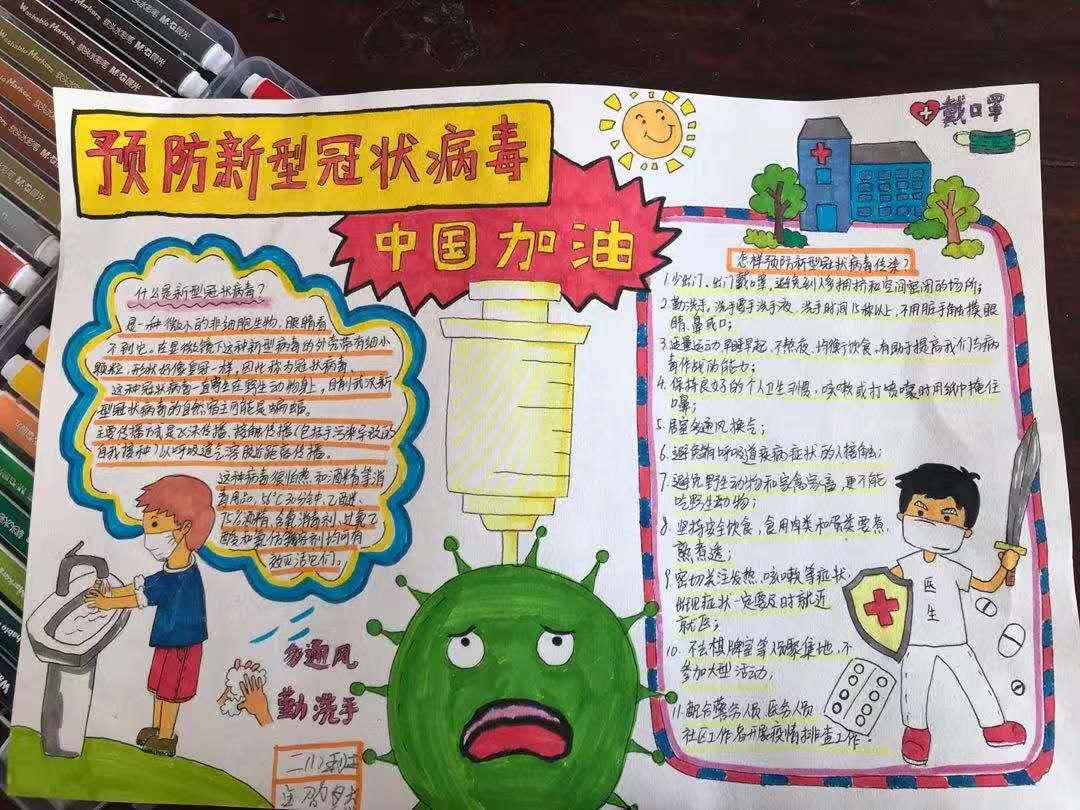 预防新型冠状病毒
中国加油
戴口罩
什么是新型冠状病毒?
是一种微小的非细胞生物,眼睛看
不到它。在显微镜下这种新型病毒的外壳带有细小
颗粒,形状好像皇冠一样,因此称为冠状病毒。
这种冠状病毒一直寄生在野生动物身上,目前武汉新
型冠状病毒的自然宿主可能是蝙蝠。
主要传播方式是飞沫传播、接触传播(包括手污染导致的
自我接种)以呼吸道气溶胶近距离传播。
这种病毒很怕热和酒精等消
毒用品,56℃30分钟、乙醚、
75%酒精、含氯消毒剂、过氧乙
酸和氯仿 均可有
效灭活它们。
多通风
勤洗手
怎样预防新型冠状病毒传染?
1.少出门、出门戴口罩,避免到人多拥挤和空间密闭的场所;
2.勤洗手。洗手要手洗手液、洗手时间15秒以上,不用脏手触摸眼
睛、鼻或口;
3.适量运动、早睡早起、不熬夜、均衡饮食,有助于提高我们与病
毒作战的能力;
4.保持良好的个人卫生习惯,咳嗽或打喷嚏时用纸巾掩住
口鼻;
5.居室多通风换气;
6.避免与有呼吸道疾病症状的人接触;
7.避免野生动物和家禽家畜,更不能
吃野生动物;
8.坚持安全饮食,食用肉类和蛋类要煮
熟煮透;
9.密切关注发热、咳嗽等症状,
出现症状一定要及时就近
就医;
10.不去棋牌室等人员聚集地,不
参加大型活动;
11.配合警务人员、医务人员
社区工作者开展疫情排查工作!
医
生